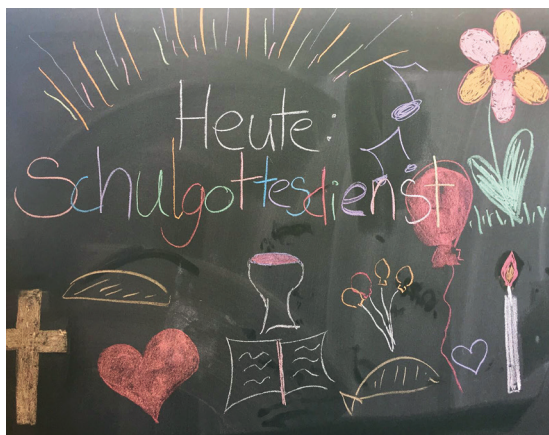 Heute:
Schulgottesdienst